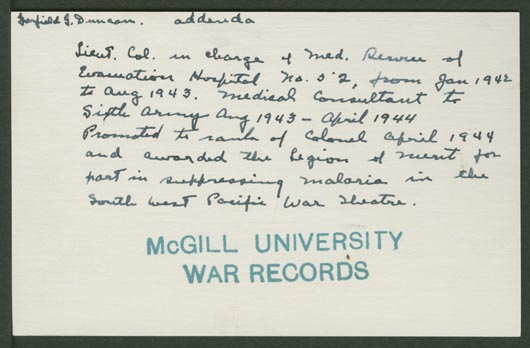 Garfield G. Duncan. addenda
Lieut. Col. in charge of Med. Service of
Evacuation Hospital No. 52, from Jan 1942
to Aug 1943. Medical Consultant to
Sixth Army Aug 1943 - April 1944
Promoted to rank of Colonel April 1944
and awarded the Legion of Merit for
part in suppressing malaria in the
South West Pacific War Theatre.
McGILL UNIVERSITY
WAR RECORDS